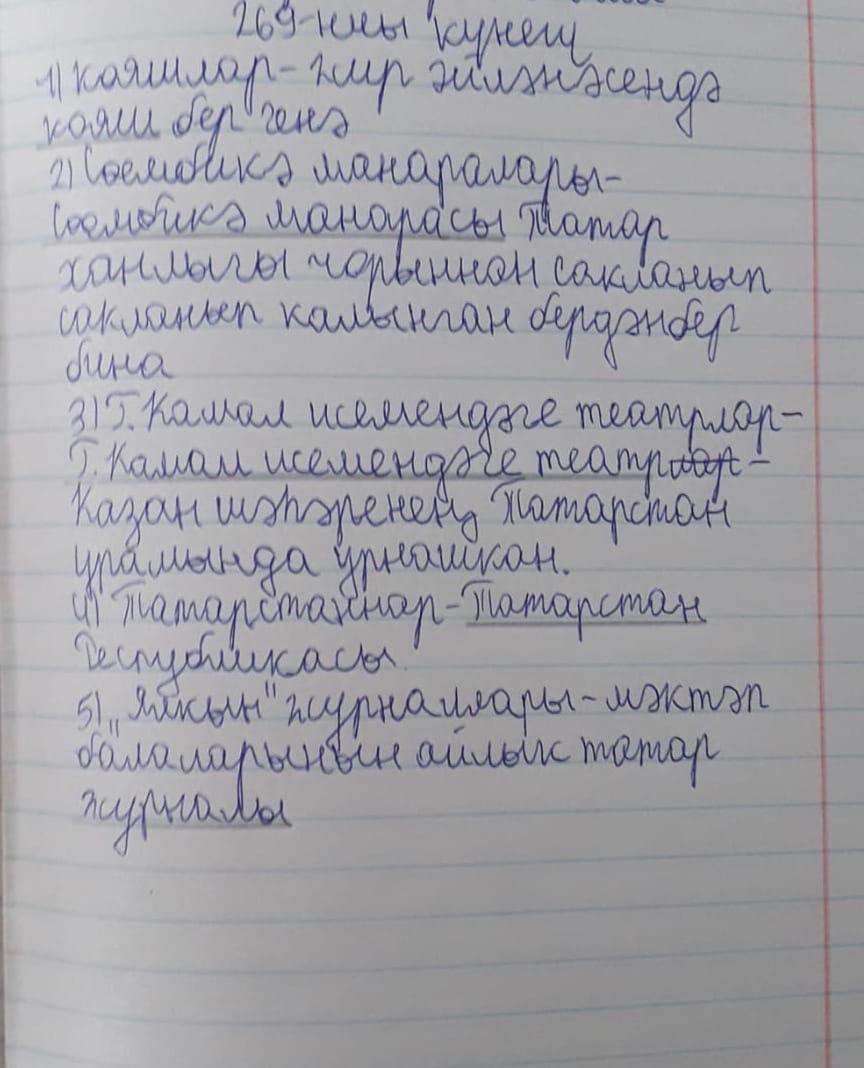 269-нчы күнегү
1) Кояшлар - җир әйләнәсендә
кояш бер генә
2) Сөембикә манаралары-
Сөембикә манарасы Татар
ханлыгы чорыннан сакланып
сакланып калынган бердәнбер
бина
3) Г. Камал исемендәге театрлар-
Г. Камал исемендәге театрлар-
Казан шәһәренең Татарстан
урамында урнашкан.
4) Татарстаннар-Татарстан
Республикасы
5) „Ялкын" журналлары-мәктәп
балаларынын айлык татар
журналы